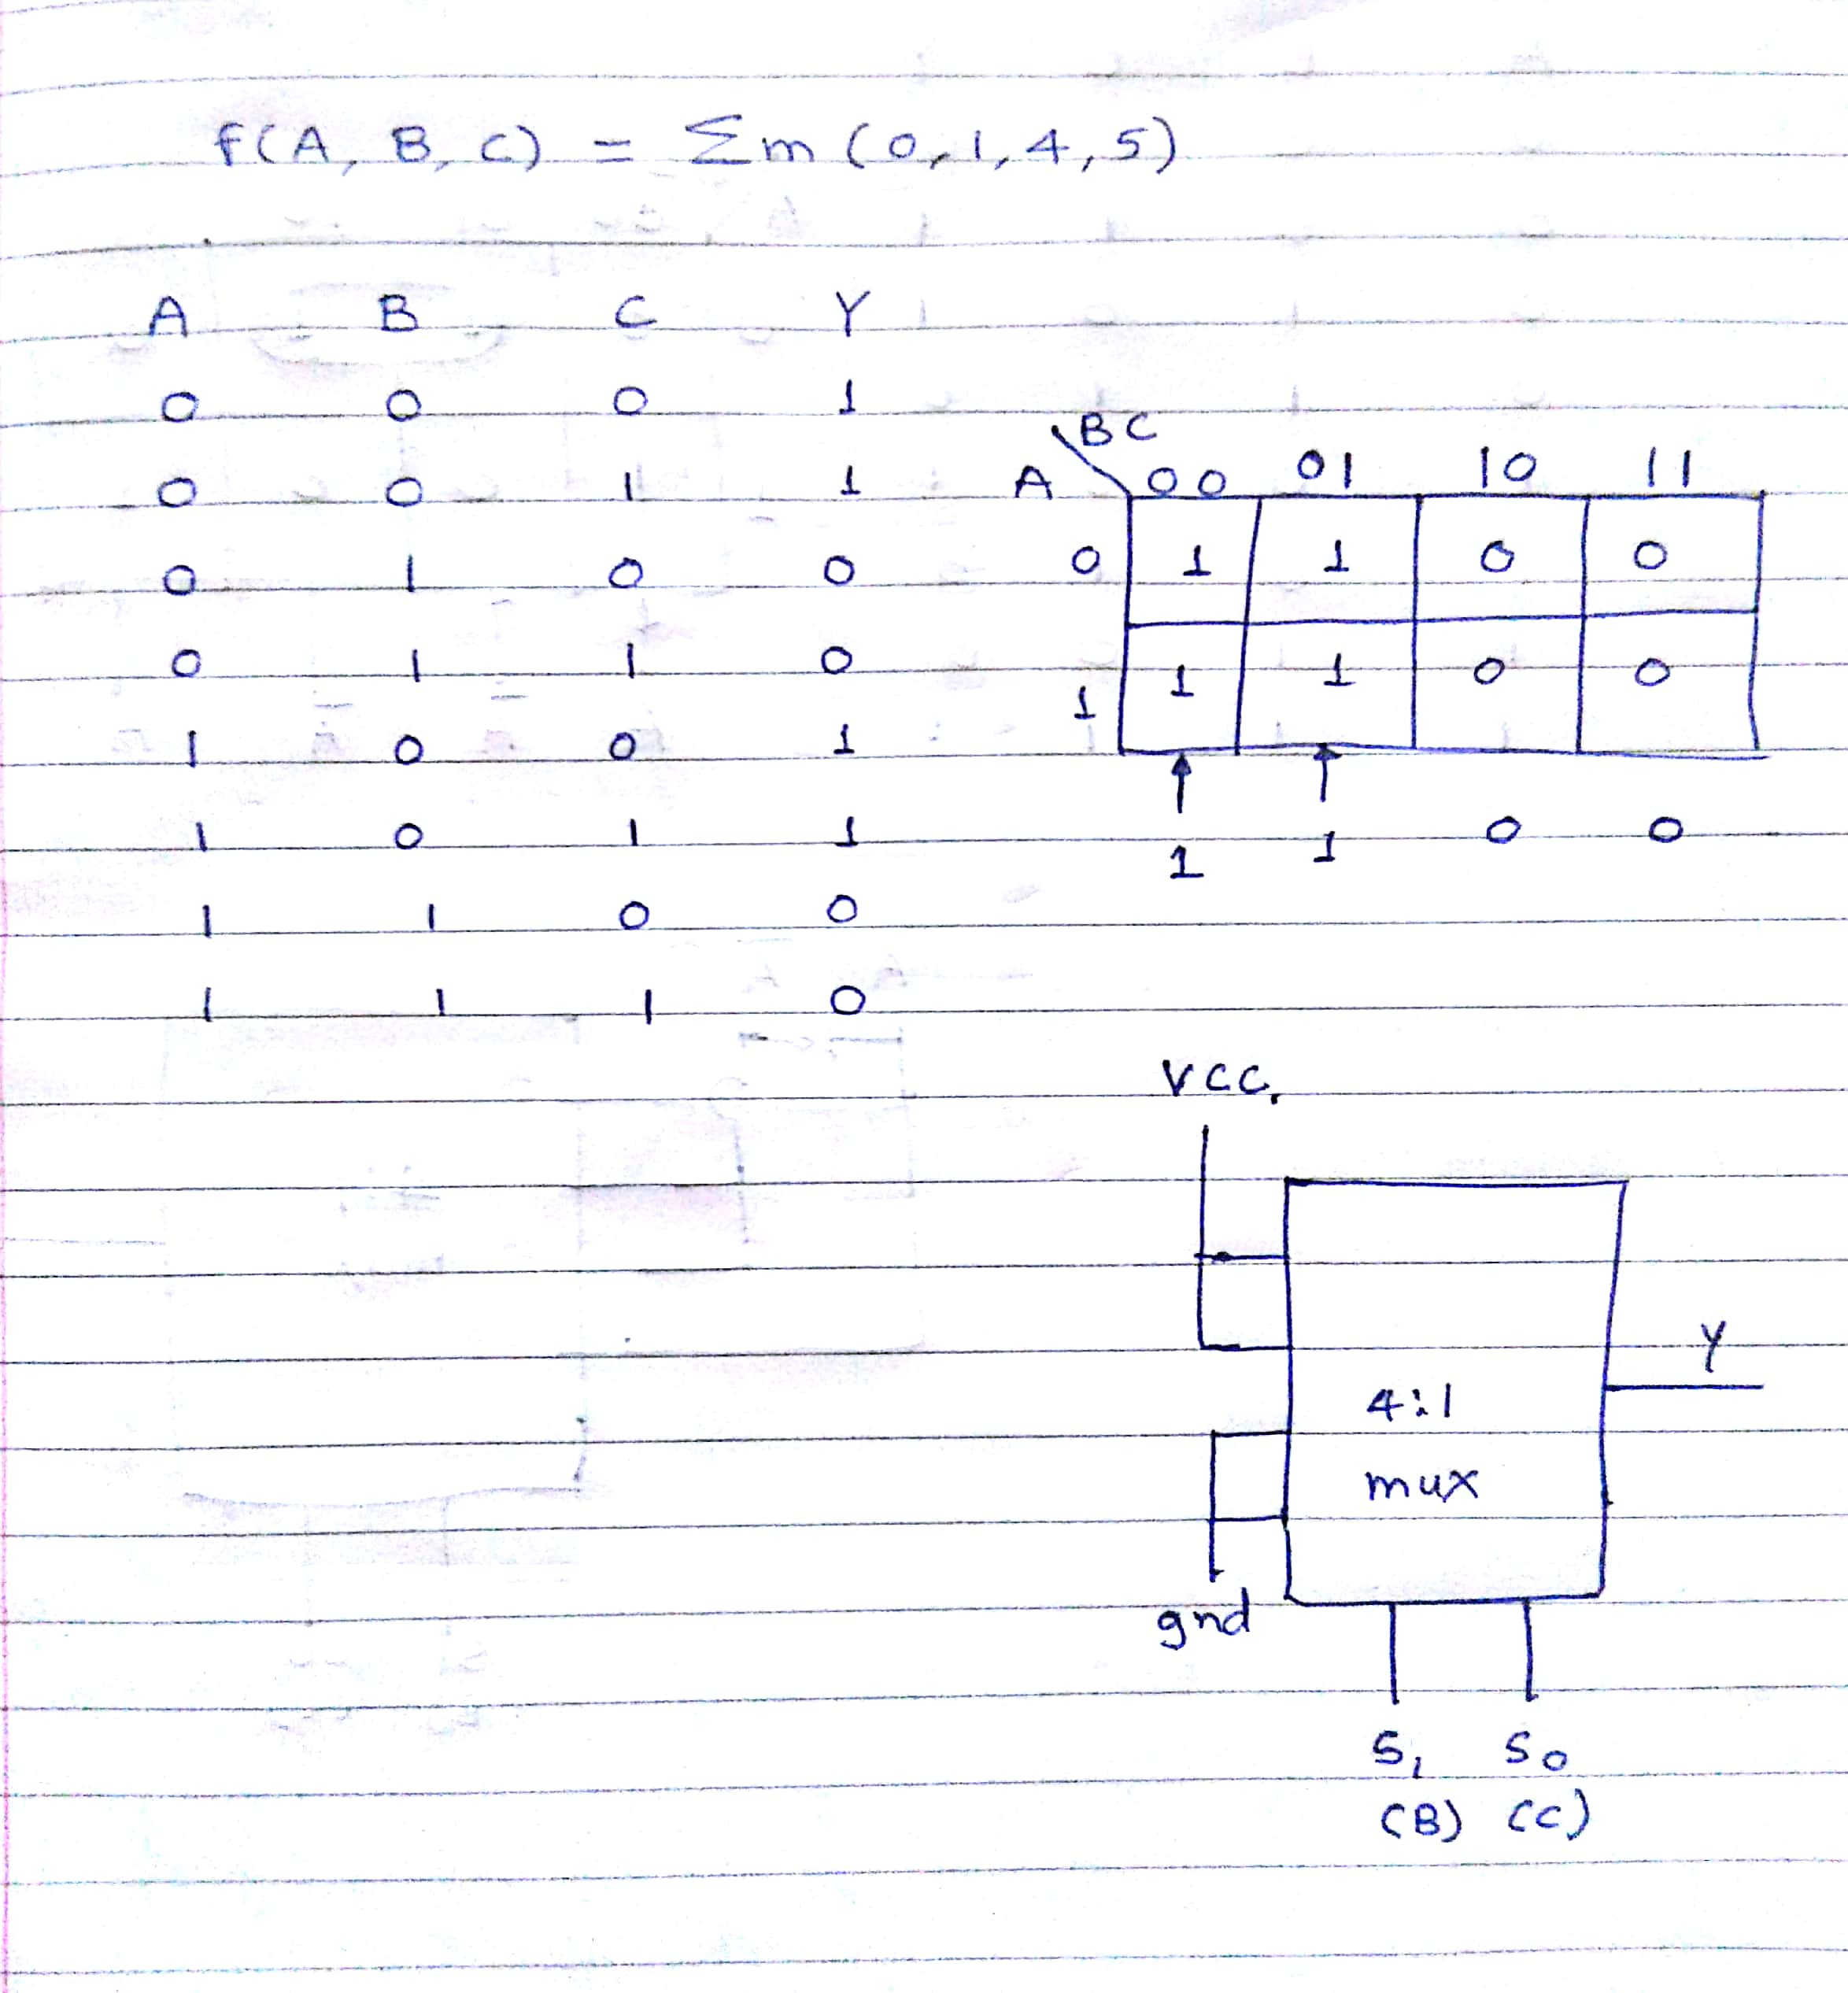 f(A, B, C) = Σm (0, 1, 4, 5)
A B C Y
0 0 0 1
0 0 1 1
0 1 0 0
0 1 1 0
1 0 0 1
1 0 1 1
1 1 0 0
1 1 1 0
BC
A 00 01 10 11
0 1 1 0 0
1 1 1 0 0
1 1 0 0
VCC
Y
4:1
mux
gnd
S1 S0
(B) (C)